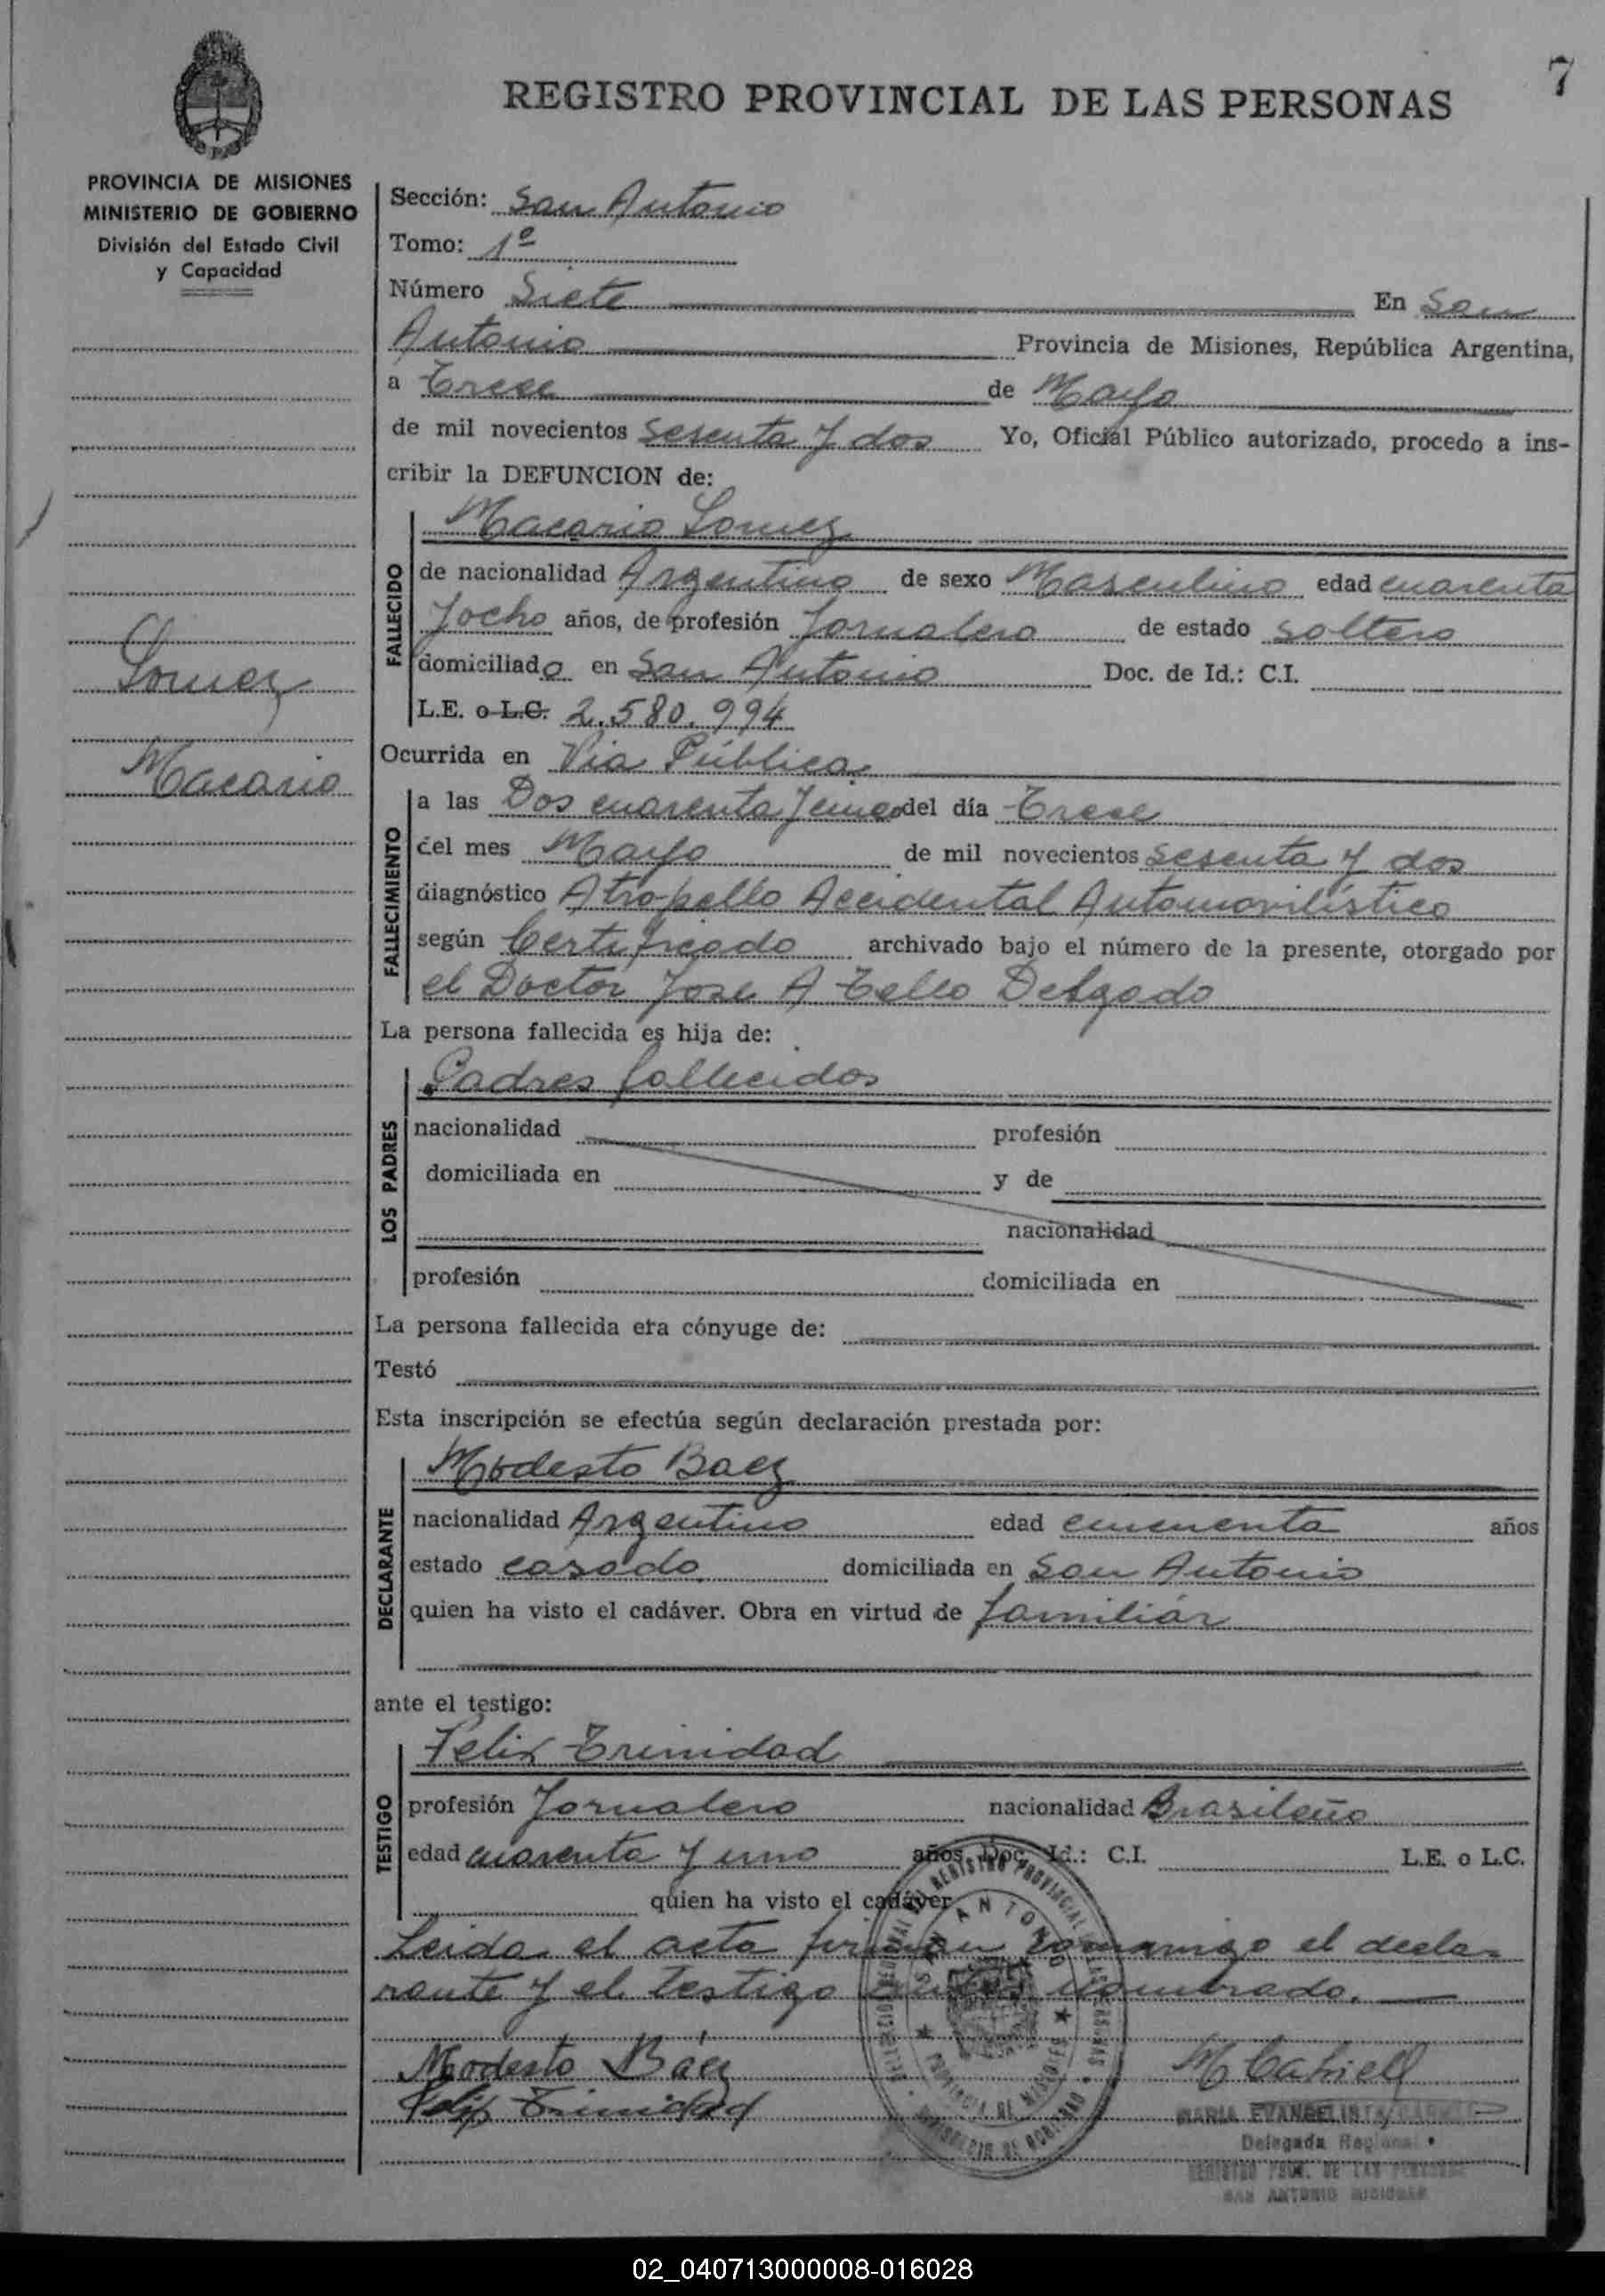 7
REGISTRO PROVINCIAL DE LAS PERSONAS
PROVINCIA DE MISIONES
MINISTERIO DE GOBIERNO
División del Estado Civil
y Capacidad
Sección: San Antonio
Tomo: 1º
Número Siete En San
Antonio Provincia de Misiones, República Argentina,
a Trece de Mayo
de mil novecientos Sesenta y dos Yo, Oficial Público autorizado, procedo a ins-
cribir la DEFUNCION de:
Gomez
Macario
FALLECIDO
Macario Gomez
de nacionalidad Argentino de sexo Masculino edad cuarenta
y ocho años, de profesión Jornalero de estado soltero
domiciliado en San Antonio Doc. de Id.: C.I.
L.E. o L.C. 2.580.994
Ocurrida en Via Pública
FALLECIMIENTO
a las Dos cuarenta y cinco del día Trece
del mes Mayo de mil novecientos Sesenta y dos
diagnóstico Atropello Accidental Automovilístico
según Certificado archivado bajo el número de la presente, otorgado por
el Doctor Jose A Tello Delgado
La persona fallecida es hija de:
LOS PADRES
Padres fallecidos
nacionalidad profesión
domiciliada en y de
nacionalidad
profesión domiciliada en
La persona fallecida era cónyuge de:
Testó
Esta inscripción se efectúa según declaración prestada por:
DECLARANTE
Modesto Baez
nacionalidad Argentino edad cincuenta años
estado casado domiciliada en San Antonio
quien ha visto el cadáver. Obra en virtud de familiar
ante el testigo:
TESTIGO
Felix Trinidad
profesión Jornalero nacionalidad Brasileño
edad cuarenta y uno años Doc. Id.: C.I. L.E. o L.C.
quien ha visto el cadáver
Leida el acta firman conmigo el decla-
rante y el testigo antes nombrado.
Modesto Báez
Felix Trinidad
MARIA EVANGELISTA
Delegada Regional
REGISTRO PROV. DE LAS PERSONAS
SAN ANTONIO MISIONES
02_040713000008-016028